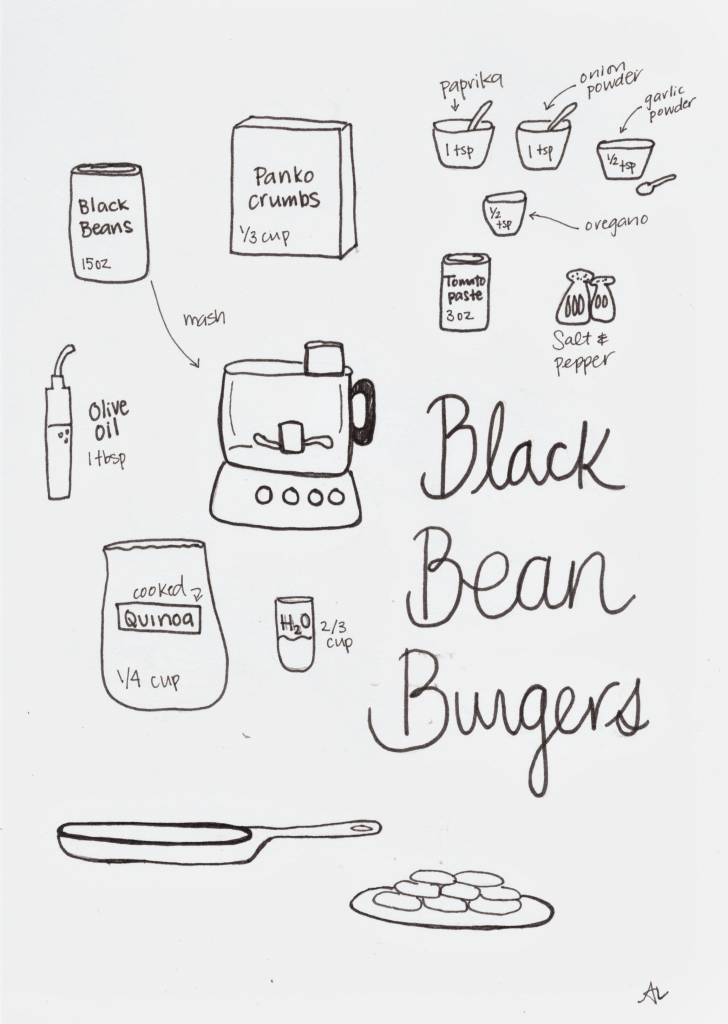 paprika
onion
powder
garlic
powder
1 tsp
1 tsp
1/2
tsp
1/2
tsp
oregano
Black
Beans
15oz
Panko
crumbs
1/3 cup
Tomato
paste
3 oz
Salt &
pepper
mash
Olive
oil
1 tbsp
Black
Bean
Burgers
cooked
Quinoa
1/4 cup
H2O
2/3
cup
AL